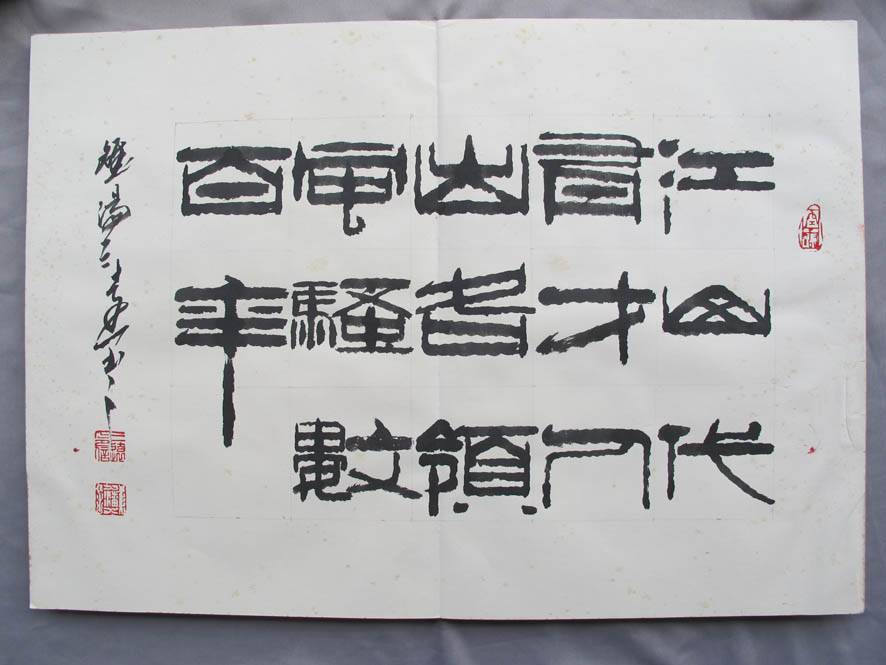 江山代
有才人
出各領
風騷數
百年